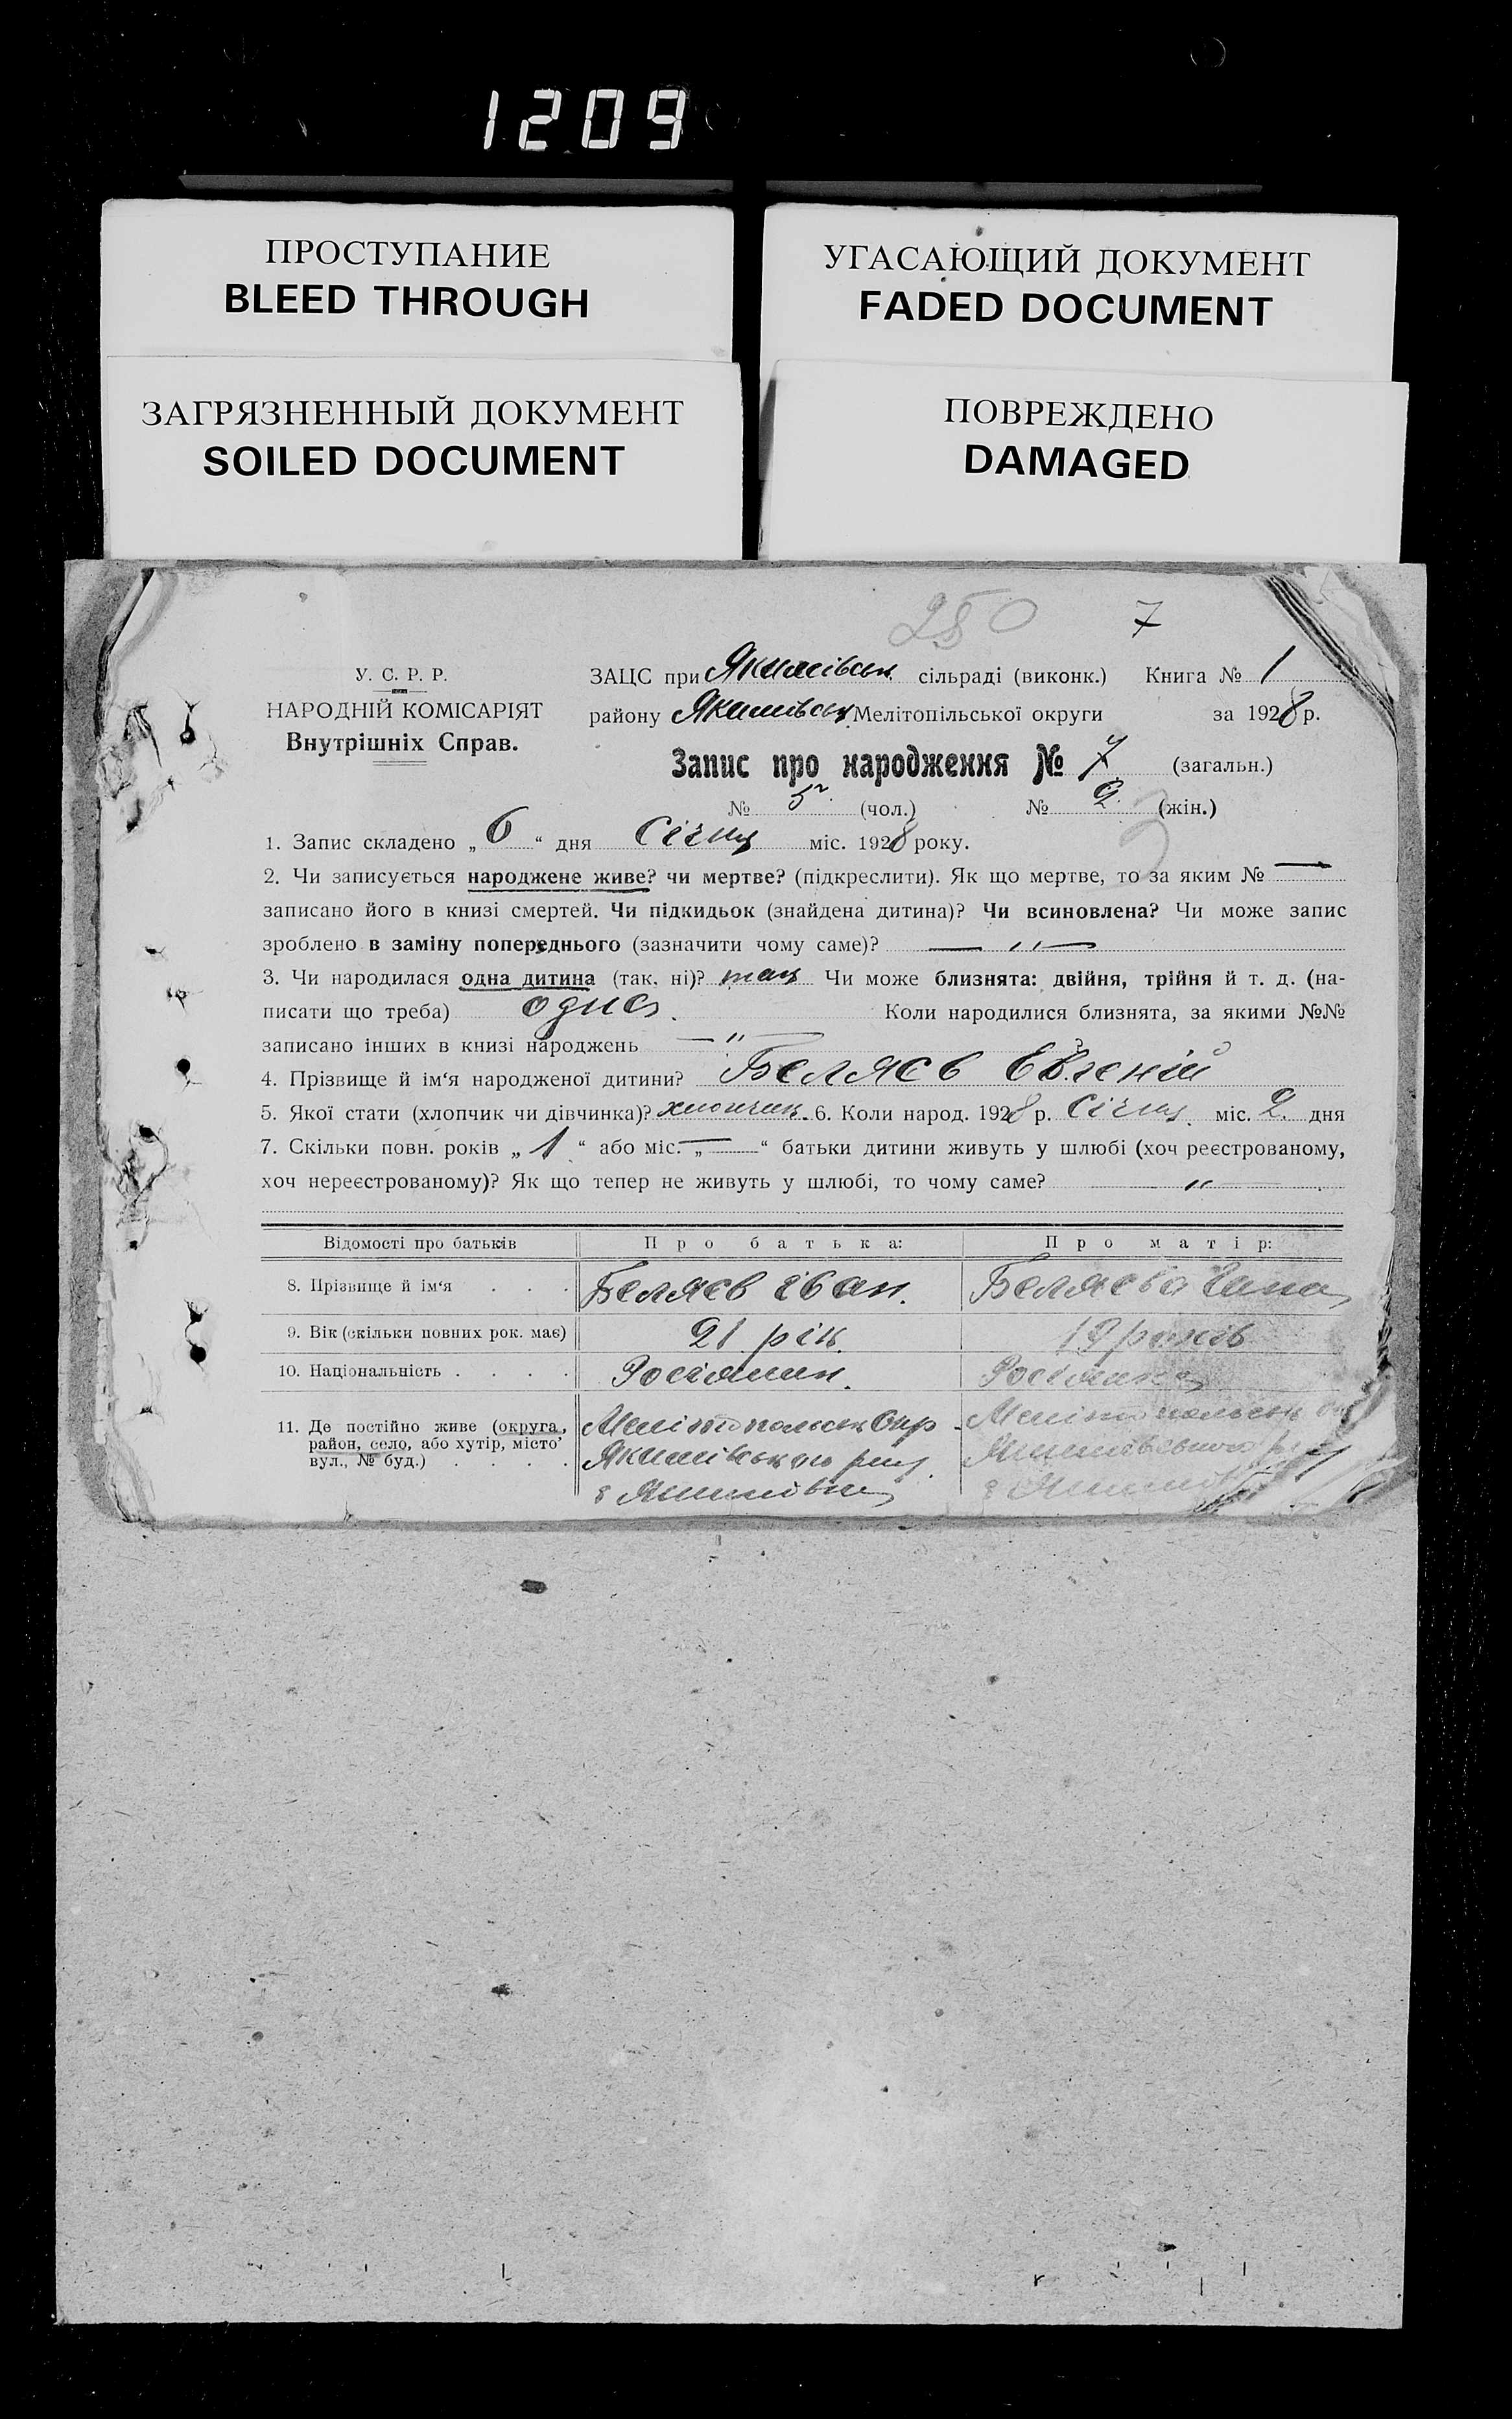 1209
ПРОСТУПАНИЕ
BLEED THROUGH
УГАСАЮЩИЙ ДОКУМЕНТ
FADED DOCUMENT
ЗАГРЯЗНЕННЫЙ ДОКУМЕНТ
SOILED DOCUMENT
ПОВРЕЖДЕНО
DAMAGED
250 7
У. С. Р. Р.
НАРОДНІЙ КОМІСАРІЯТ
Внутрішніх Справ.
ЗАЦС при Якимівськ сільраді (виконк.) Книга № 1
району Якимівськ Мелітопільської округи за 1928 р.
Запис про народження № 7 (загальн.)
№ 5 (чол.) № 2 (жін.)
1. Запис складено „ 6 “ дня Січня міс. 1928 року.
2. Чи записується народжене живе? чи мертве? (підкреслити). Як що мертве, то за яким № —
записано його в книзі смертей. Чи підкидьок (знайдена дитина)? Чи всиновлена? Чи може запис
зроблено в заміну попереднього (зазначити чому саме)? — „ —
3. Чи народилася одна дитина (так, ні)? так Чи може близнята: двійня, трійня й т. д. (на-
писати що треба) одна. Коли народилися близнята, за якими №№
записано інших в книзі народжень — „ ?
4. Прізвище й ім‘я народженої дитини? Беляєв Євгеній
5. Якої стати (хлопчик чи дівчинка)? хлопчик. 6. Коли народ. 1928 р. Січня міс. 2 дня
7. Скільки повн. років „ 1 “ або міс. „ — “ батьки дитини живуть у шлюбі (хоч реєстрованому,
хоч нереєстрованому)? Як що тепер не живуть у шлюбі, то чому саме? — „ —
Відомості про батьків Про батька: Про матір:
8. Прізвище й ім‘я . . . Беляєв Іван. Беляєва
9. Вік (скільки повних рок. має) 21 рік. 19 років
10. Національність . . . . Росіянин. Росіянка
11. Де постійно живе (округа, район, село, або хутір, місто’ вул., № буд.) . . . .
Мелітопольськ Окр
Якимівського рну.
с Якимівка
Мелітопольськ
Якимівського
с Якимів